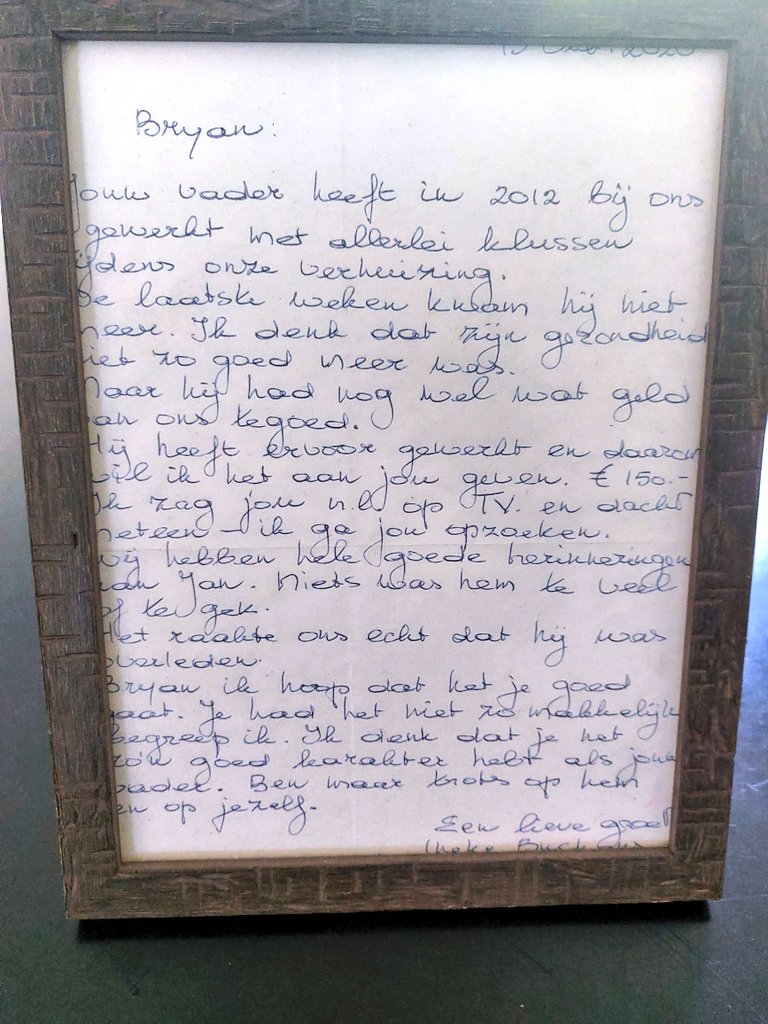 Bryan:
Jouw vader heeft in 2012 bij ons
gewerkt met allerlei klussen
ijdens onze verhuizing.
De laatste weken kwam hij niet
meer. Ik denk dat zijn gezondheid
niet zo goed meer was.
Maar hij had nog wel wat geld
van ons tegoed.
Hij heeft ervoor gewerkt en daarom
wil ik het aan jou geven. € 150.-
Ik zag jou n.l. op TV. en dacht
meteen - ik ga jou opzoeken.
Wij hebben hele goede herinneringen
aan Jan. Niets was hem te veel
of te gek.
Het raakte ons echt dat hij was
overleden.
Bryan ik hoop dat het je goed
gaat. Je had het niet zo makkelijk
begreep ik. Ik denk dat je net
zo'n goed karakter hebt als jouw
vader. Ben maar trots op hem
en op jezelf.
Een lieve groet